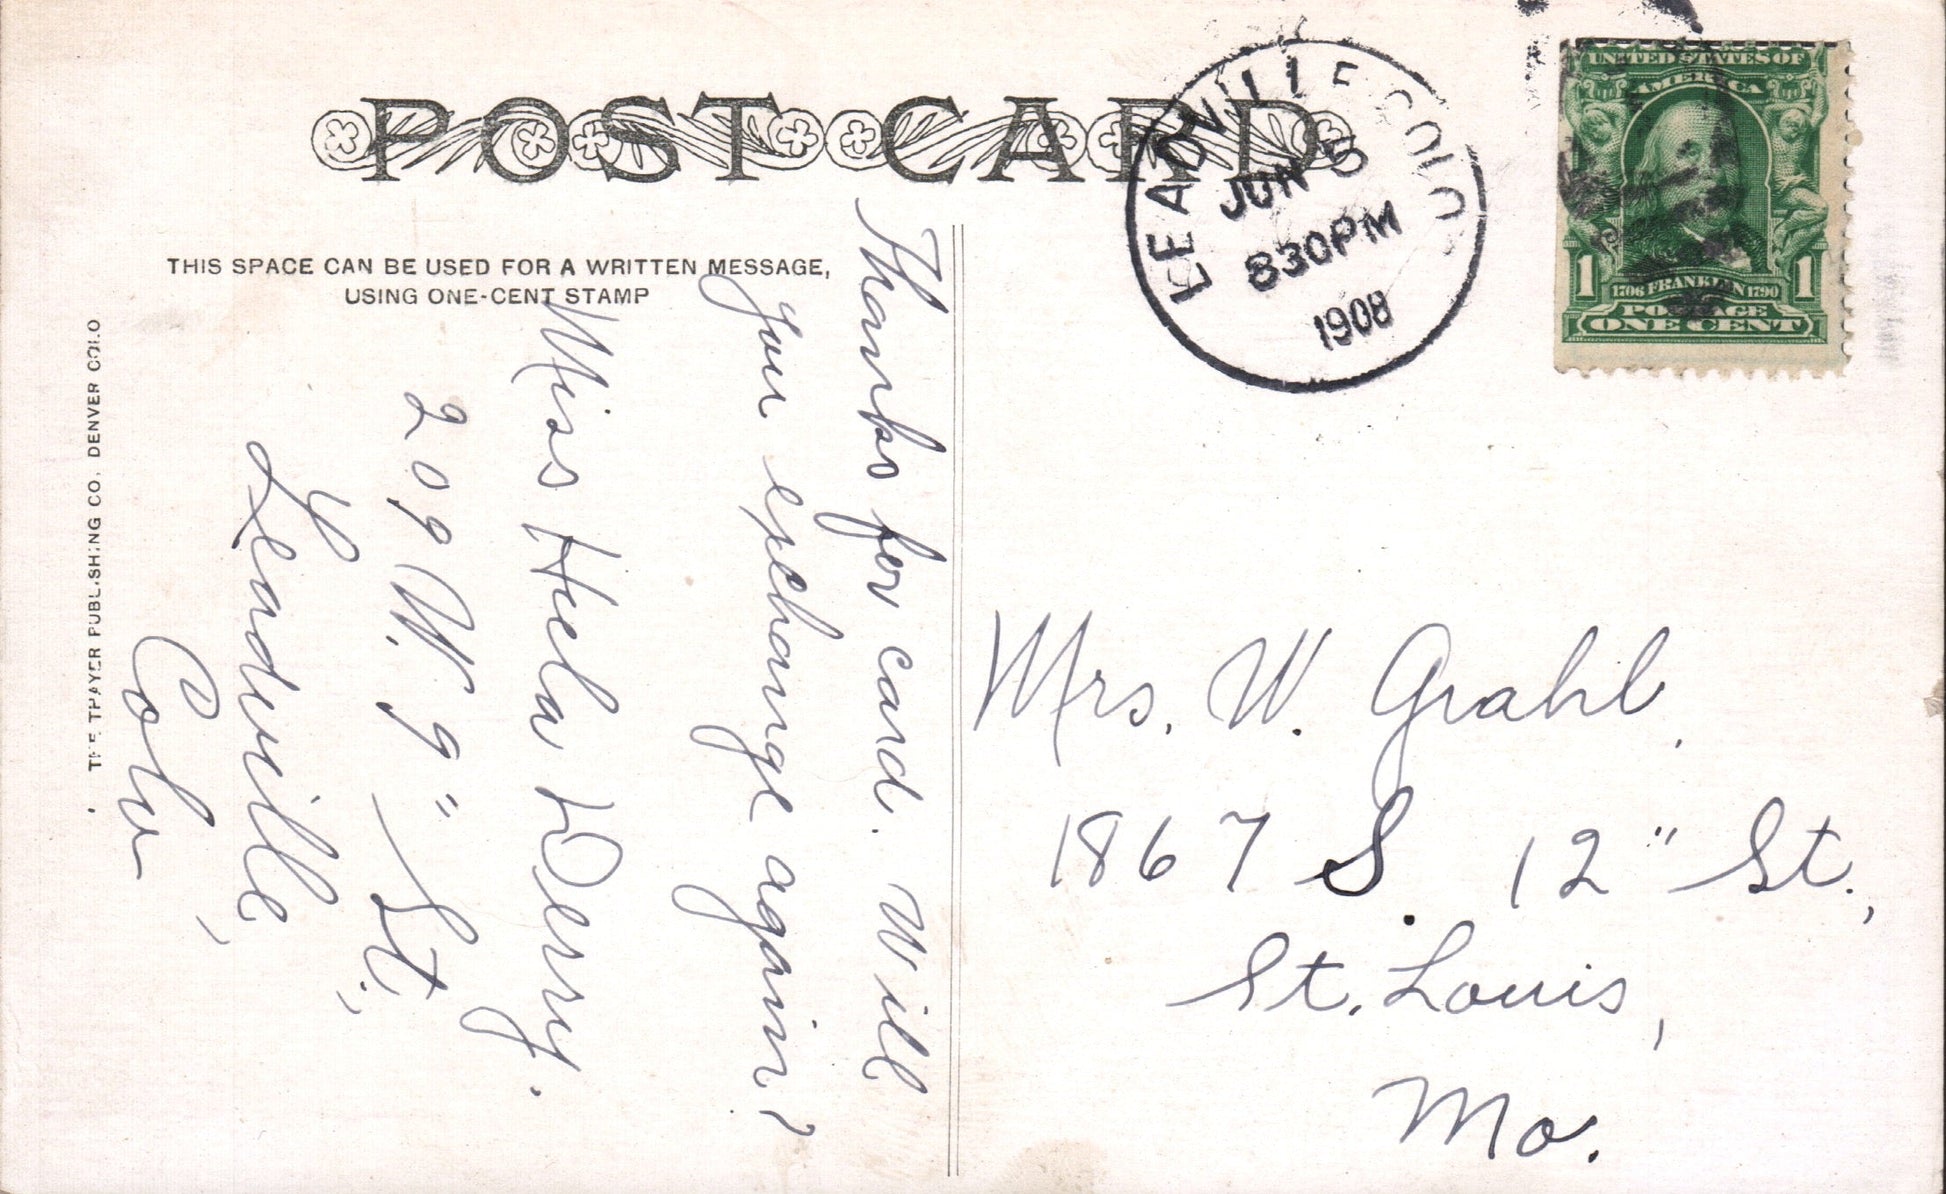 POST CARD
THIS SPACE CAN BE USED FOR A WRITTEN MESSAGE,
USING ONE-CENT STAMP
THE THAYER PUBLISHING CO., DENVER COLO
Thanks for card. Will
you exchange again?
Miss Hela Derry.
209 W. 9" St.,
Leadville,
Colo
LEADVILLE COLO.
JUN 5
830PM
1908
UNITED STATES OF
AMERICA
1 1706 FRANKLIN 1790 1
POSTAGE
ONE CENT
Mrs. W. Grahl,
1867 S. 12" St.,
St. Louis,
Mo.